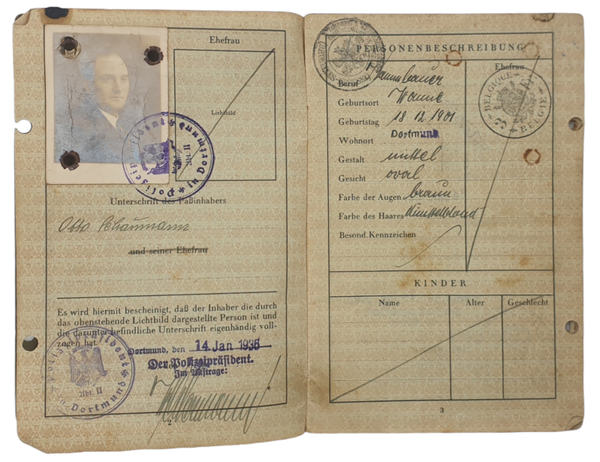 Ehefrau
Lichtbild
Polizeipräsident in Dortmund
Abt. II
Unterschrift des Paßinhabers
Otto Schaumann
und seiner Ehefrau
Es wird hiermit bescheinigt, daß der Inhaber die durch
das obenstehende Lichtbild dargestellte Person ist und
die darunter befindliche Unterschrift eigenhändig voll-
zogen hat.
Dortmund, den 14 Jan 1936
Der Polizeipräsident.
Im Auftrage:
Abt. II
Dortmund
2
PERSONENBESCHREIBUNG
Ehefrau
Beruf
Geburtsort Wanne
Geburtstag 18 12 1901
Wohnort Dortmund
Gestalt mittel
Gesicht oval
Farbe der Augen braun
Farbe des Haares dunkelblond
Besond. Kennzeichen
BELGIQUE
BELGIE
KINDER
Name Alter Geschlecht
3